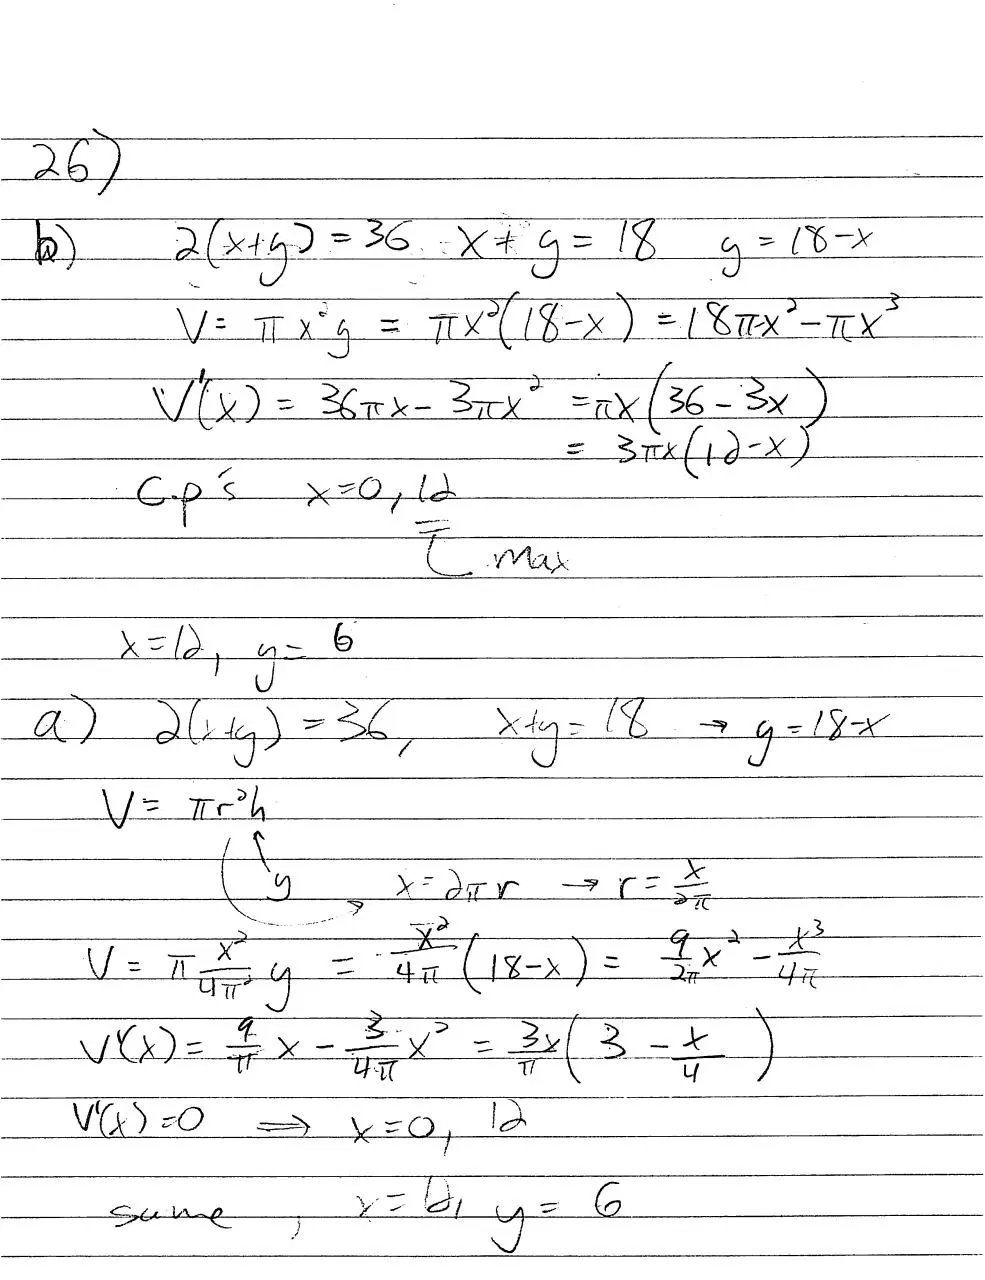 26)
b) 2(x+y) = 36 x + y = 18 y = 18-x
V = πx²y = πx²(18-x) = 18πx² - πx³
V'(x) = 36πx - 3πx² = πx(36 - 3x)
= 3πx(12-x)
C.p's x=0, 12
max
x=12, y= 6
a) 2(x+y) = 36, x+y = 18 → y = 18-x
V = πr²h
y x = 2πr → r = x/2π
V = π x²/4π² y = x²/4π (18-x) = 9/2π x² - x³/4π
V'(x) = 9/π x - 3/4π x² = 3x/π (3 - x/4)
V'(x) = 0 ⇒ x=0, 12
same, x=12, y = 6